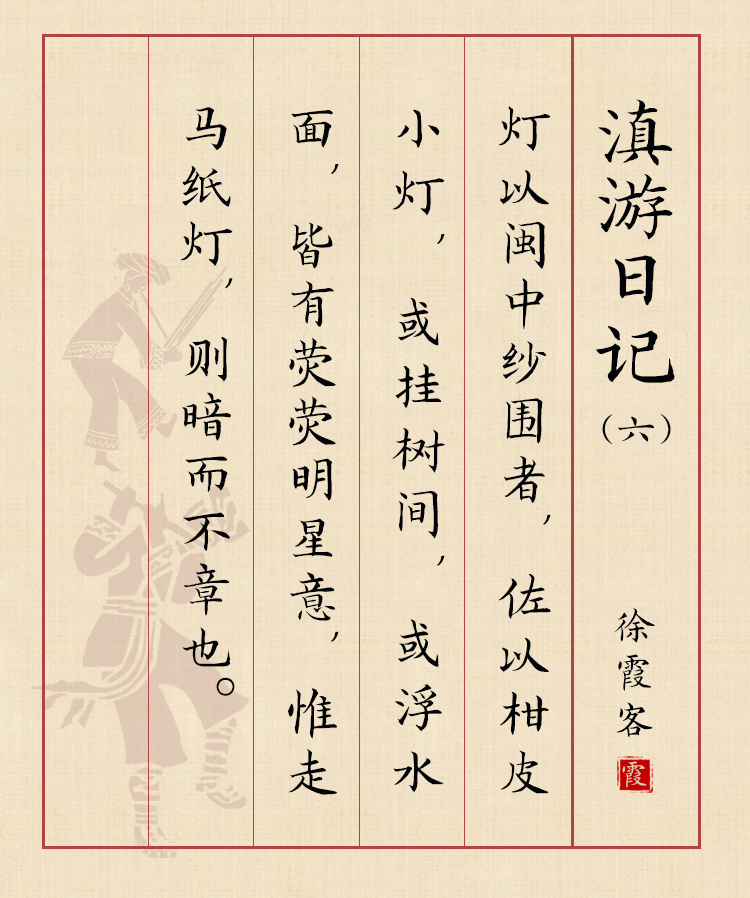 滇游日记
（六）
徐霞客
霞
灯以闽中纱围者，佐以柑皮
小灯，或挂树间，或浮水
面，皆有荧荧明星意，惟走
马纸灯，则暗而不章也。